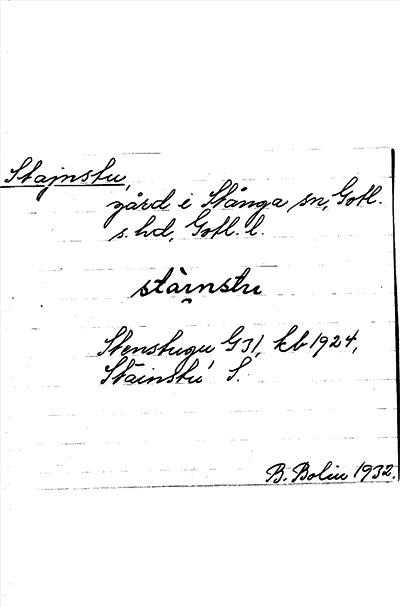 Stajnstu,
gård i Stånga sn, Gotl.
s. hd, Gotl. l.
stàı̯nstu
Stenstugu G31, kb 1924,
Stäinstu S.
B. Bolin 1932.